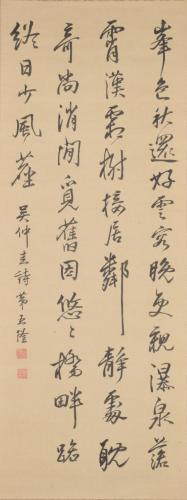 峯色秋還好雲容晚更親瀑泉落
霄漢霜樹接居鄰靜處耽
奇尚消閒覓舊因悠々橋畔路
終日少風塵 吳仲圭詩 第五隆